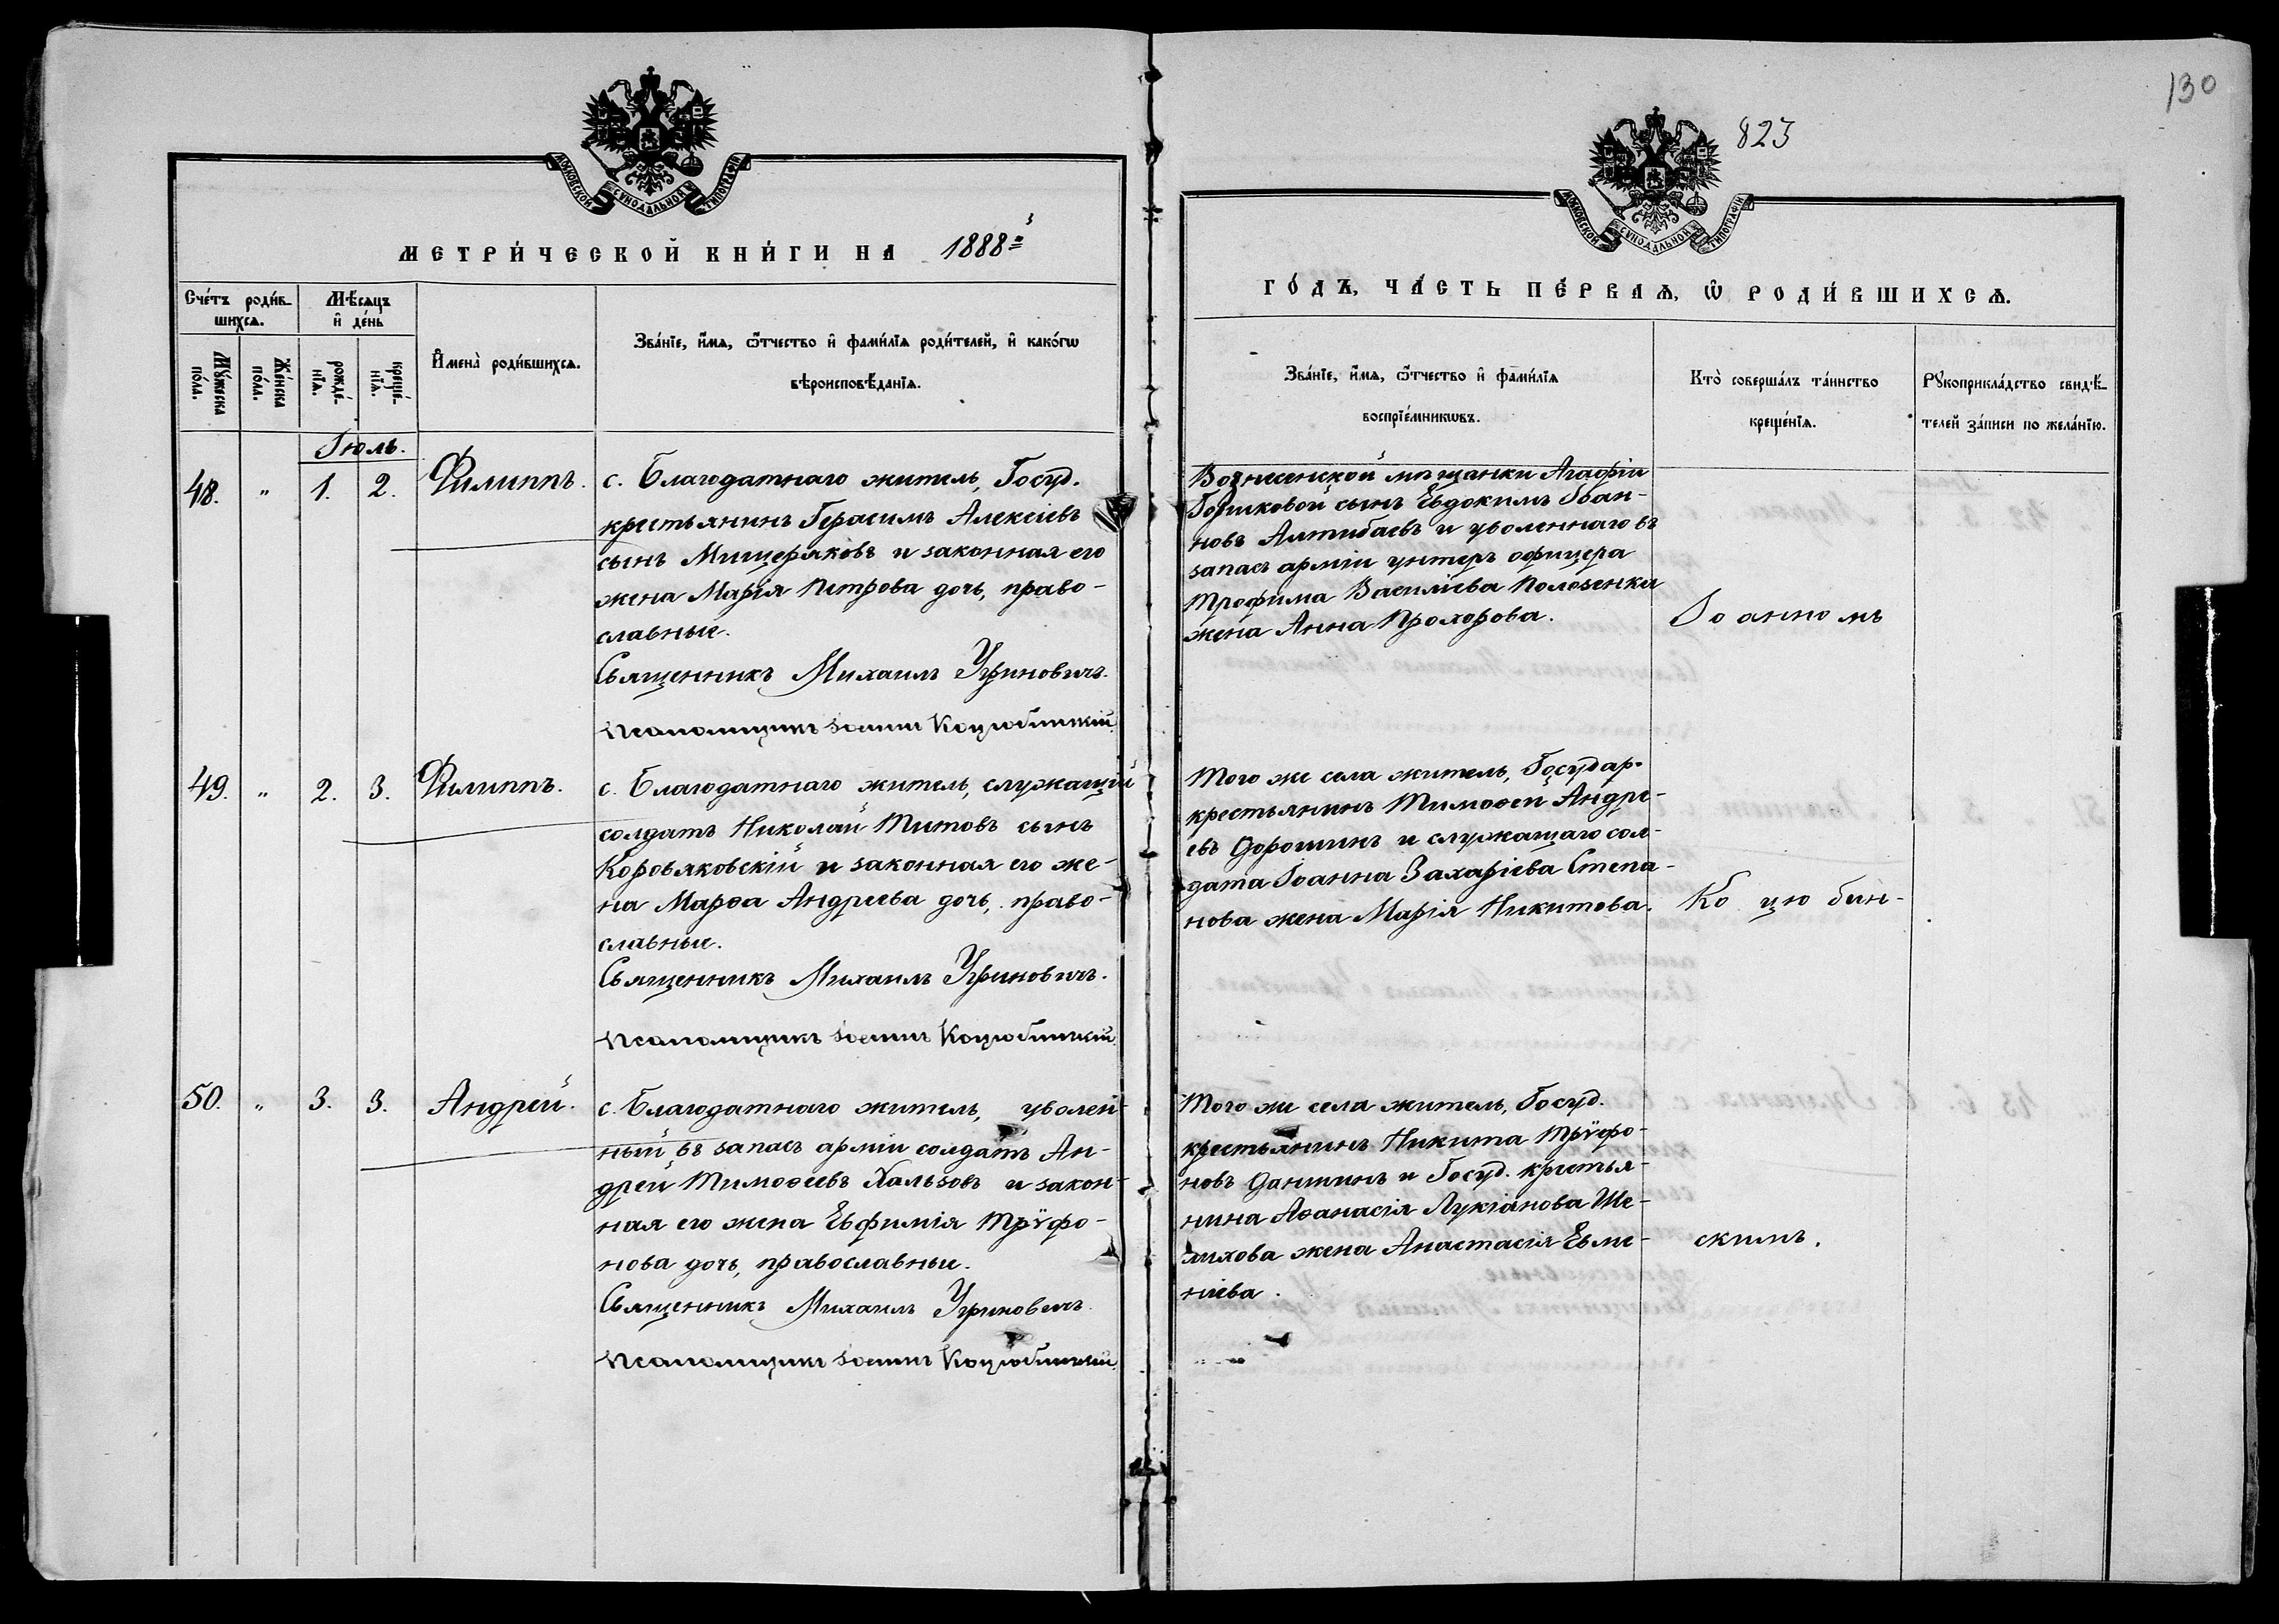 130
823
МОСКОВСКОЙ СѴНОДАЛЬНОЙ ТИПОГРАФІИ
МОСКОВСКОЙ СѴНОДАЛЬНОЙ ТИПОГРАФІИ
МЕТРИ́ЧЕСКОЙ КНИ́ГИ НА 1888й
ГО́ДЪ, ЧА́СТЬ ПЕ́РВАѦ, Ѡ РОДИ́ВШИХСѦ.
Сче́тъ роди́в-
шихсѧ.
Мѣ́сѧцъ
и҆ де́нь
Мꙋ́жеска
по́ла.
Же́нска
по́ла.
рожде́-
нїѧ.
креще́-
нїѧ.
И҆мена̀ роди́вшихсѧ.
Зва́нїе, и҆́мѧ, ѻ҆́тчество и҆ фами́лїѧ роди́телей, и҆ како́гѡ
вѣроисповѣ́данїѧ.
Зва́нїе, и҆́мѧ, ѻ҆́тчество и҆ фами́лїѧ
воспрїе́мникѡвъ.
Кто̀ соверша́лъ та́инство
креще́нїѧ.
Рꙋкоприкла́дство свидѣ́-
телей за́писи по жела́нїю.
Іюль.
48. " 1. 2. Филиппъ.
с. Благодатнаго житель, Госуд.
крестьянинъ Герасимъ Алексіевъ
сынъ Мищеряковъ и законная его
жена Марія Петрова дочь, право-
славные.
Священникъ Михаилъ Угриновичъ.
Псаломщикъ Іоаннъ Коцюбинскій.
Вознесенской мѣщанки Агафіи
Горшковой сынъ Евдокимъ Іоан-
новъ Алтибаевъ и уволеннаго въ
запасъ арміи унтеръ офицера
Трофима Василіева Полозенка
жена Анна Прохорова.
Іо анно мъ
49. " 2. 3. Филиппъ.
с. Благодатнаго житель, служащій
солдатъ Николай Титовъ сынъ
Коровяковскій и законная его же-
на Марѳа Андреева дочь, право-
славные.
Священникъ Михаилъ Угриновичъ.
Псаломщикъ Іоаннъ Коцюбинскій.
Того же села житель, Государ.
крестьянинъ Тимоѳей Андре-
евъ Дорошинъ и служащаго сол-
дата Іоанна Захаріева Степа-
нова жена Марія Никитова.
Ко цю бин-
50. " 3. 3. Андрей.
с. Благодатнаго житель, уволен-
ный въ запасъ арміи солдатъ Ан-
дрей Тимоѳеевъ Хальзовъ и закон-
ная его жена Евфимія Трѵфо-
нова дочь, православные.
Священникъ Михаилъ Угриновичъ
Псаломщикъ Іоаннъ Коцюбинскій.
Того же села житель, Госуд.
крестьянинъ Никита Трѵфо-
новъ Даншинъ и Госуд. крестья-
нина Аѳанасія Лукіанова Ше-
лихова жена Анастасія Евме-
ніева.
скимъ.